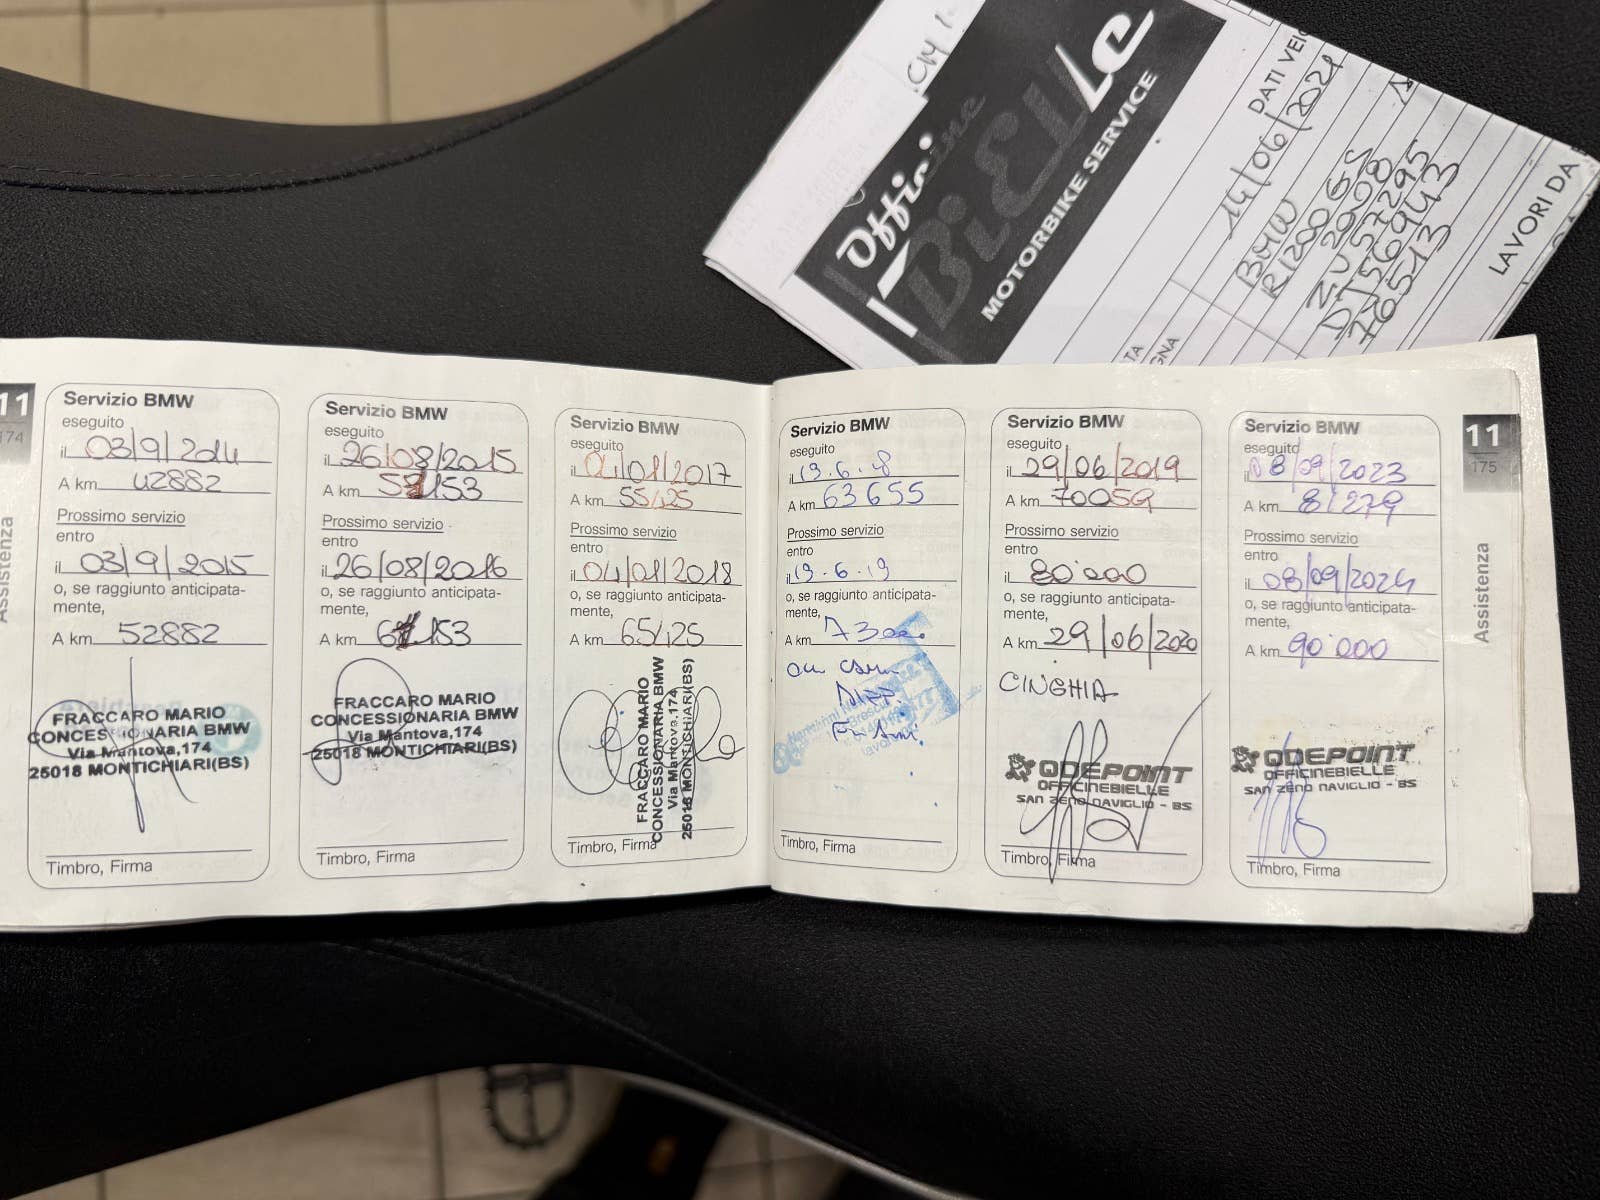 Officine
BiELLe
MOTORBIKE SERVICE
DATI VEIC
14/06/2021
BMW
R1200GS
2008
DJ56943
76513
LAVORI DA
11
174
Assistenza
Servizio BMW
eseguito
il 03/9/2014
A km 42882
Prossimo servizio
entro
il 03/9/2015
o, se raggiunto anticipata-
mente,
A km 52882
FRACCARO MARIO
CONCESSIONARIA BMW
Via Mantova,174
25018 MONTICHIARI(BS)
Timbro, Firma
Servizio BMW
eseguito
il 26/08/2015
A km 153
Prossimo servizio
entro
il 26/08/2016
o, se raggiunto anticipata-
mente,
A km 153
FRACCARO MARIO
CONCESSIONARIA BMW
Via Mantova,174
25018 MONTICHIARI(BS)
Timbro, Firma
Servizio BMW
eseguito
il 04/01/2017
A km 55125
Prossimo servizio
entro
il 04/01/2018
o, se raggiunto anticipata-
mente,
A km 65125
FRACCARO MARIO
CONCESSIONARIA BMW
Via Mantova,174
25018 MONTICHIARI(BS)
Timbro, Firma
Servizio BMW
eseguito
il 19.6.18
A km 63655
Prossimo servizio
entro
il 19.6.19
o, se raggiunto anticipata-
mente,
A km
Timbro, Firma
Servizio BMW
eseguito
il 29/06/2019
A km 70059
Prossimo servizio
entro
il 80'000
o, se raggiunto anticipata-
mente,
A km 29/06/2020
CINGHIA
QDEPOINT
OFFICINEBIELLE
SAN ZENO NAVIGLIO - BS
Timbro, Firma
Servizio BMW
eseguito
il 08/09/2023
A km 81279
Prossimo servizio
entro
il 08/09/2024
o, se raggiunto anticipata-
mente,
A km 90'000
QDEPOINT
OFFICINEBIELLE
SAN ZENO NAVIGLIO - BS
Timbro, Firma
11
175
Assistenza